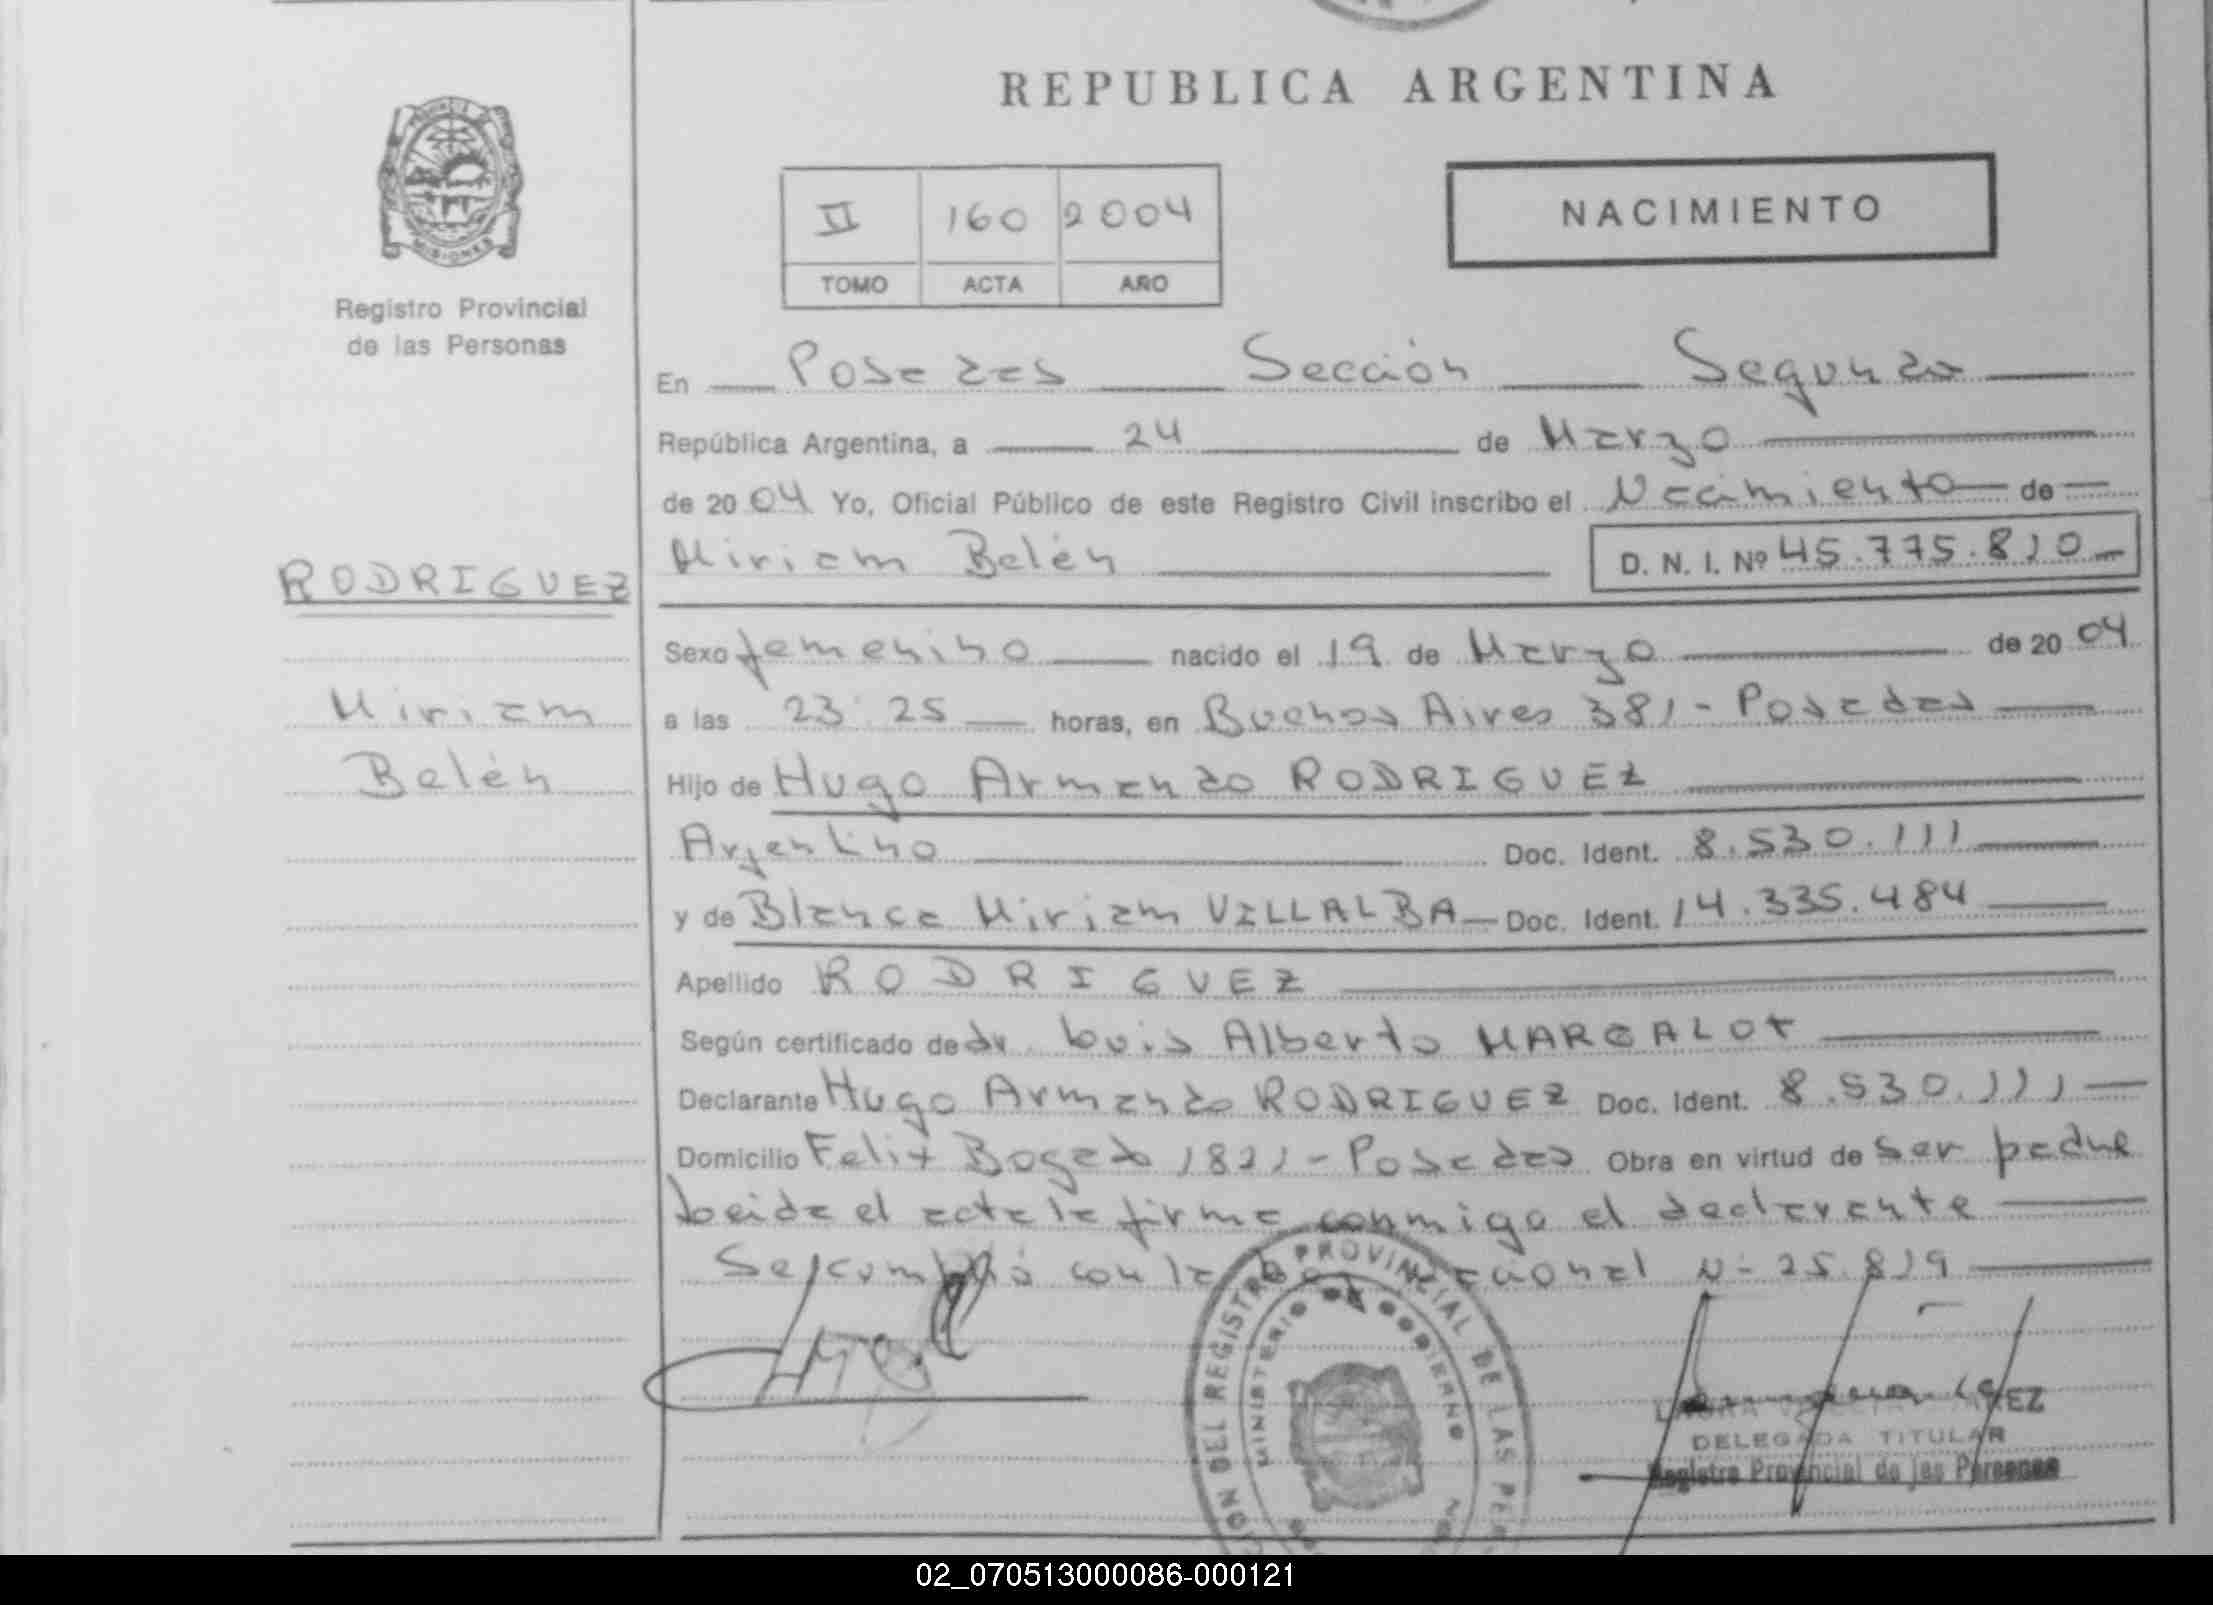 REPUBLICA ARGENTINA
PROVINCIA DE MISIONES
Registro Provincial
de las Personas
II 160 2004
TOMO ACTA AÑO
NACIMIENTO
RODRIGUEZ
Miriam
Belén
En Posadas Sección Segunda
República Argentina, a 24 de Marzo
de 2004 Yo, Oficial Público de este Registro Civil inscribo el Nacimiento de
Miriam Belén D. N. I. Nº 45.775.810
Sexo femenino nacido el 19 de Marzo de 2004
a las 23:25 horas, en Buenos Aires 381 - Posadas
Hijo de Hugo Armando RODRIGUEZ
Argentino Doc. Ident. 8.530.111
y de Blanca Miriam VILLALBA Doc. Ident. 14.335.484
Apellido RODRIGUEZ
Según certificado de dr. Luis Alberto MARGALOT
Declarante Hugo Armando RODRIGUEZ Doc. Ident. 8.530.111
Domicilio Felix Bogado 1821 - Posadas Obra en virtud de ser padre
Leida el acta la firma conmigo el declarante
Se cumplió con la Nacional Nº 25.819
REGISTRO PROVINCIAL DE LAS
MINISTERIO DE GOBIERNO
LAURA
DELEGADA TITULAR
Registro Provincial de las Personas
02_070513000086-000121